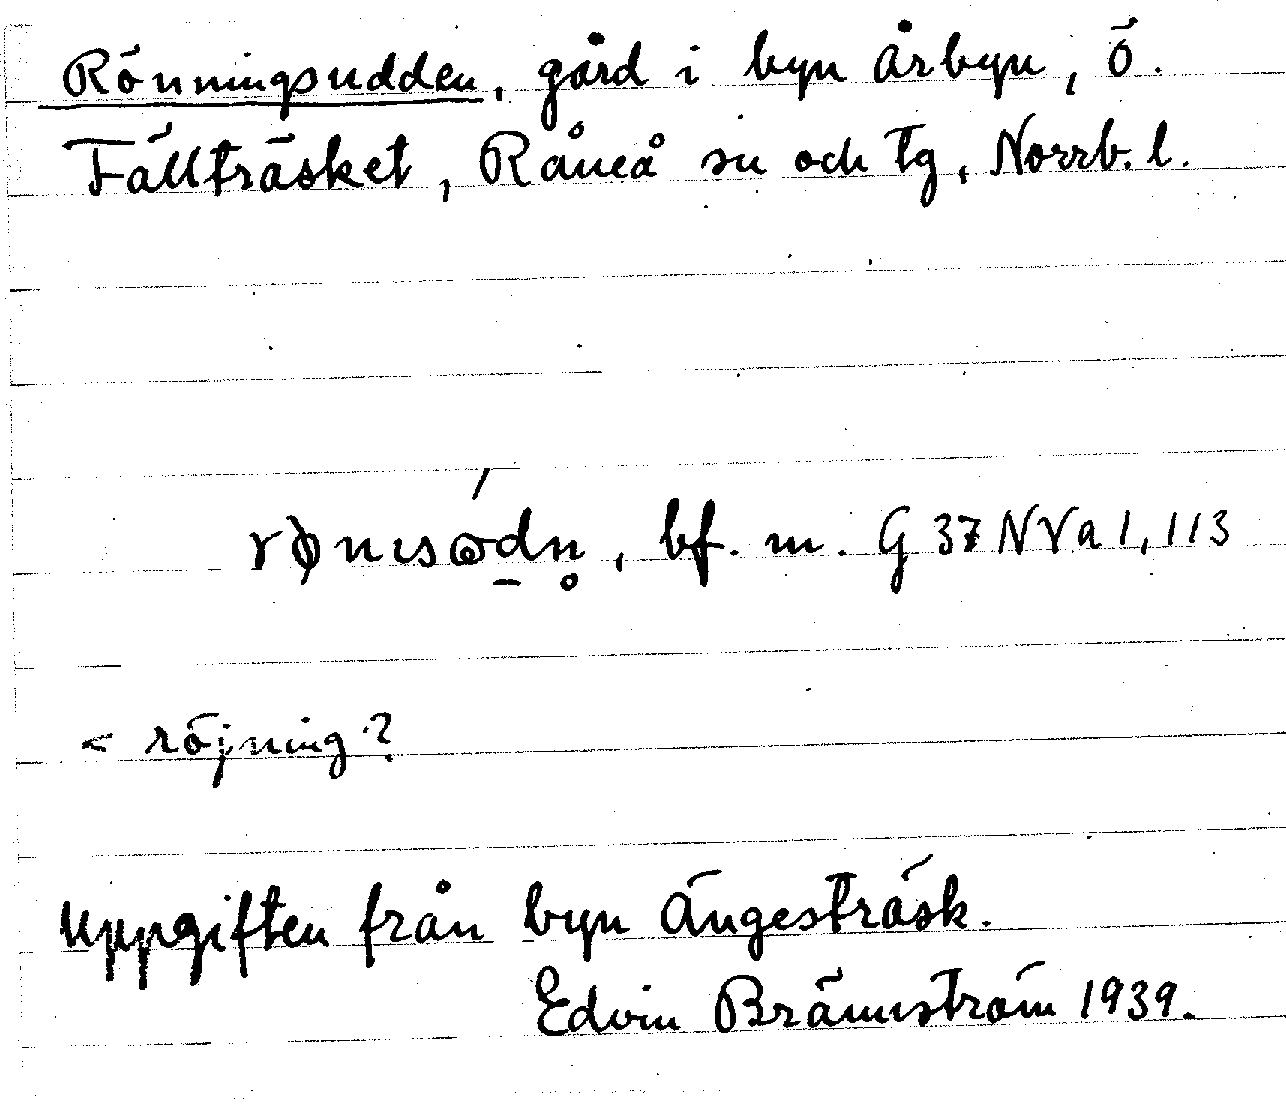 Rönningsudden, gård i byn Årbyn, Ö.
Fällträsket, Råneå sn och tg, Norrb. l.
bf. m. G 37 N Va 1, 113
< röjning?
Uppgiften från byn Ängesträsk.
Edvin Brännström 1939.